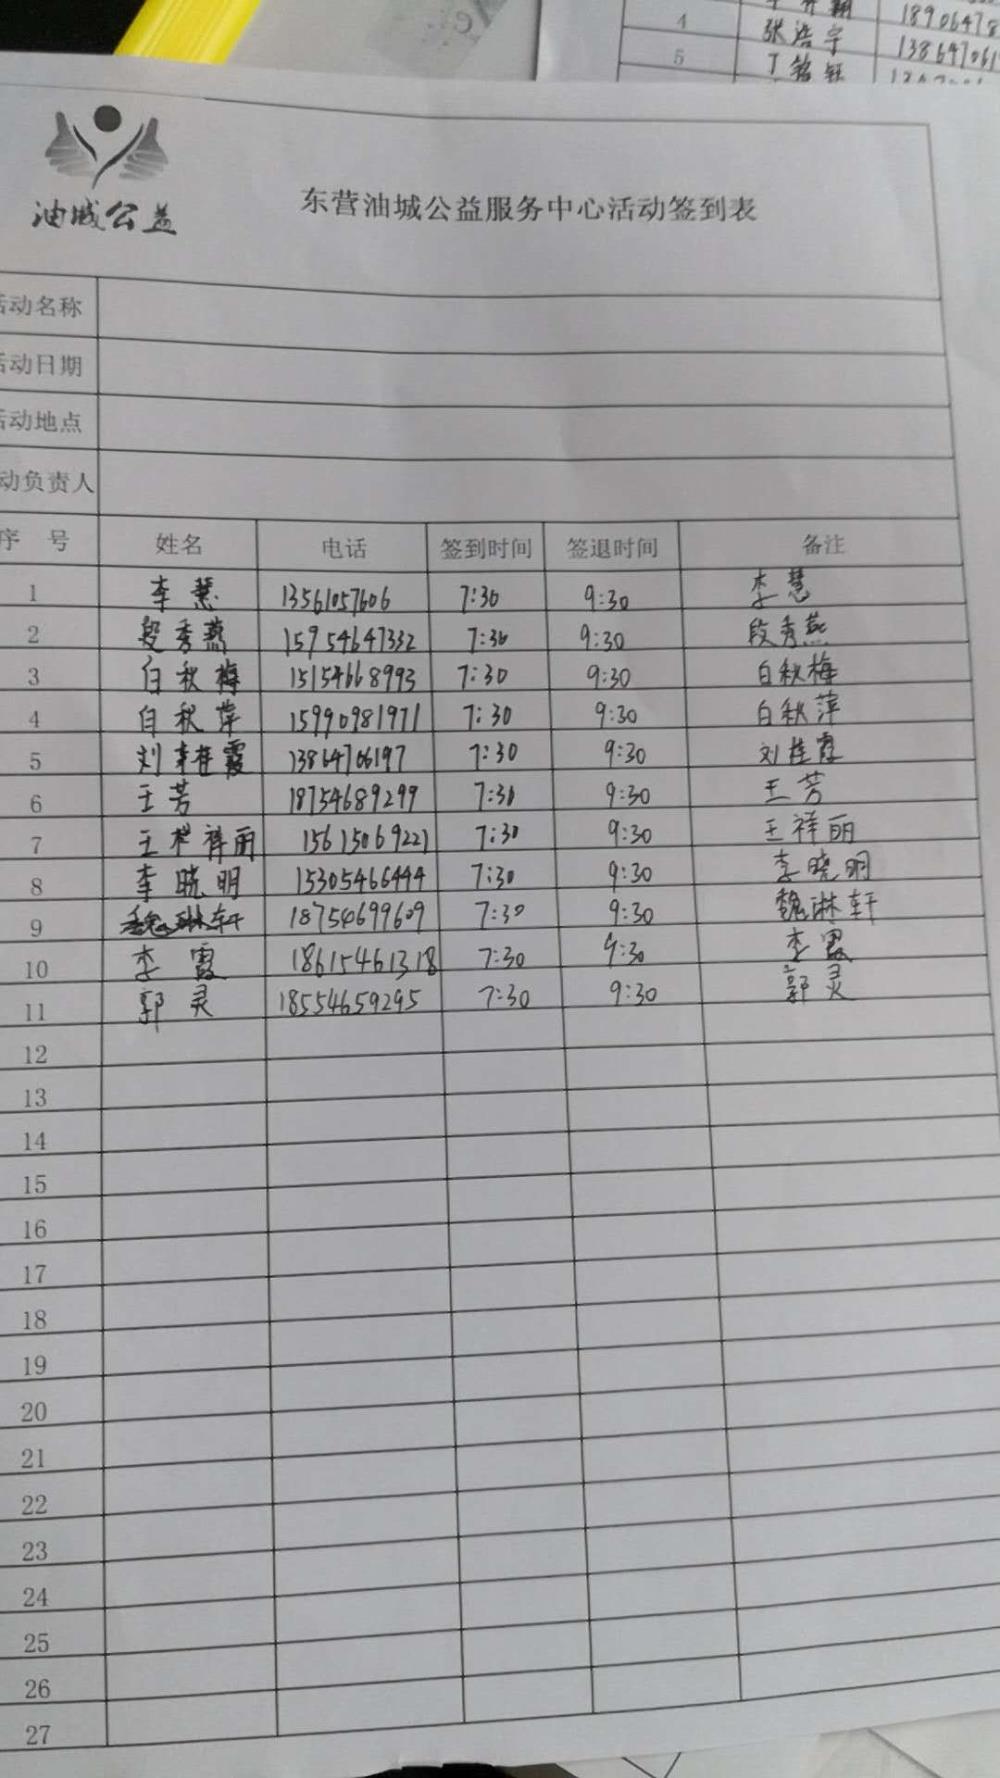 4 张浩宇
5 丁铭钰
油城公益
东营油城公益服务中心活动签到表
活动名称
活动日期
活动地点
动负责人
序 号 姓名 电话 签到时间 签退时间 备注
1 李慧 13561057606 7:30 9:30 李慧
2 段秀燕 15954647332 7:30 9:30 段秀燕
3 白秋梅 15154668993 7:30 9:30 白秋梅
4 白秋萍 15990981971 7:30 9:30 白秋萍
5 刘桂霞 13864706197 7:30 9:30 刘桂霞
6 王芳 18754689299 7:30 9:30 王芳
7 王祥丽 15615069221 7:30 9:30 王祥丽
8 李晓明 15305466444 7:30 9:30 李晓明
9 魏琳轩 18754699609 7:30 9:30 魏琳轩
10 李霞 18615461318 7:30 9:30 李霞
11 郭灵 18554659295 7:30 9:30 郭灵
12
13
14
15
16
17
18
19
20
21
22
23
24
25
26
27